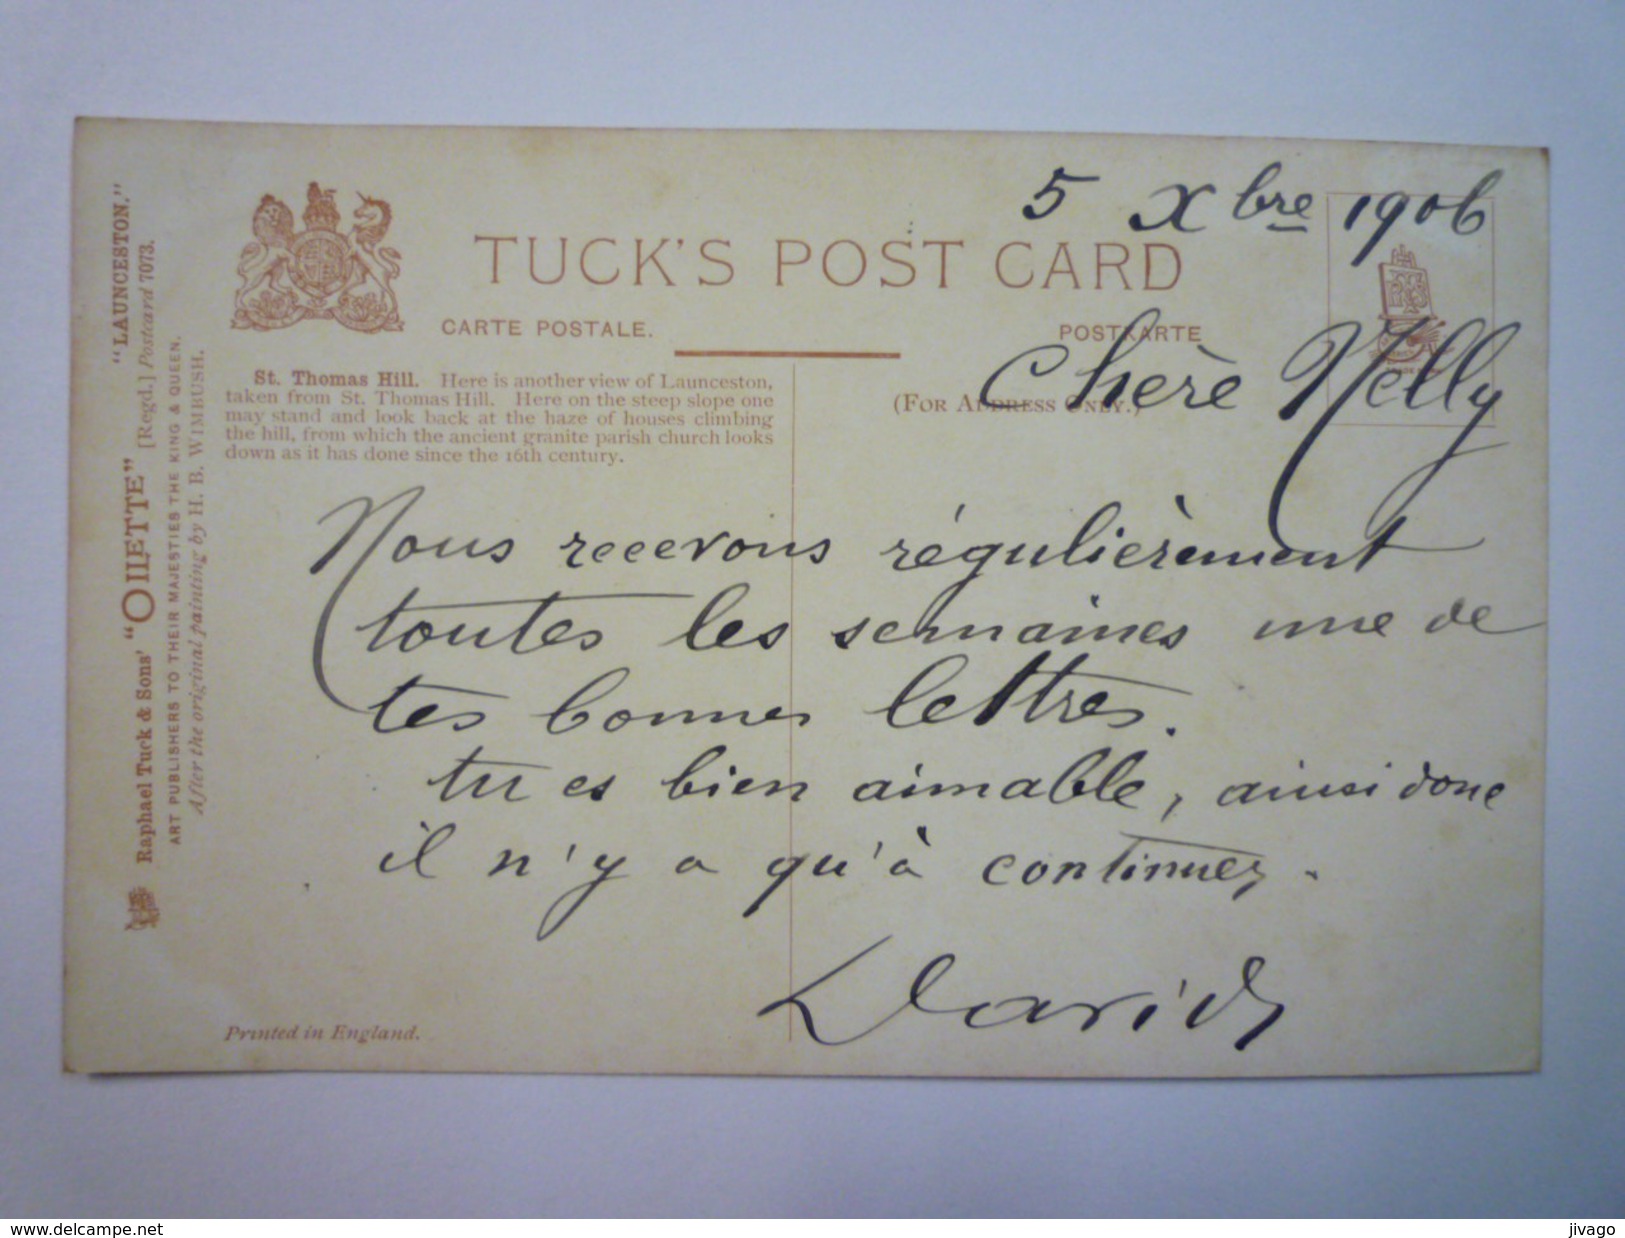 5 Xbre 1906
TUCK'S POST CARD
CARTE POSTALE.
POSTKARTE
(FOR ADDRESS ONLY.)
Chère Nelly
St. Thomas Hill. Here is another view of Launceston,
taken from St. Thomas Hill. Here on the steep slope one
may stand and look back at the haze of houses climbing
the hill, from which the ancient granite parish church looks
down as it has done since the 16th century.
Nous recevons régulièrement
toutes les semaines une de
tes bonnes lettres.
tu es bien aimable, ainsi donc
il n'y a qu'à continuer.
David
Printed in England.
Raphael Tuck & Sons' "OILETTE" [Regd.] Postcard 7073. "LAUNCESTON."
ART PUBLISHERS TO THEIR MAJESTIES THE KING & QUEEN.
After the original painting by H. B. WIMBUSH.
www.delcampe.net
jivago